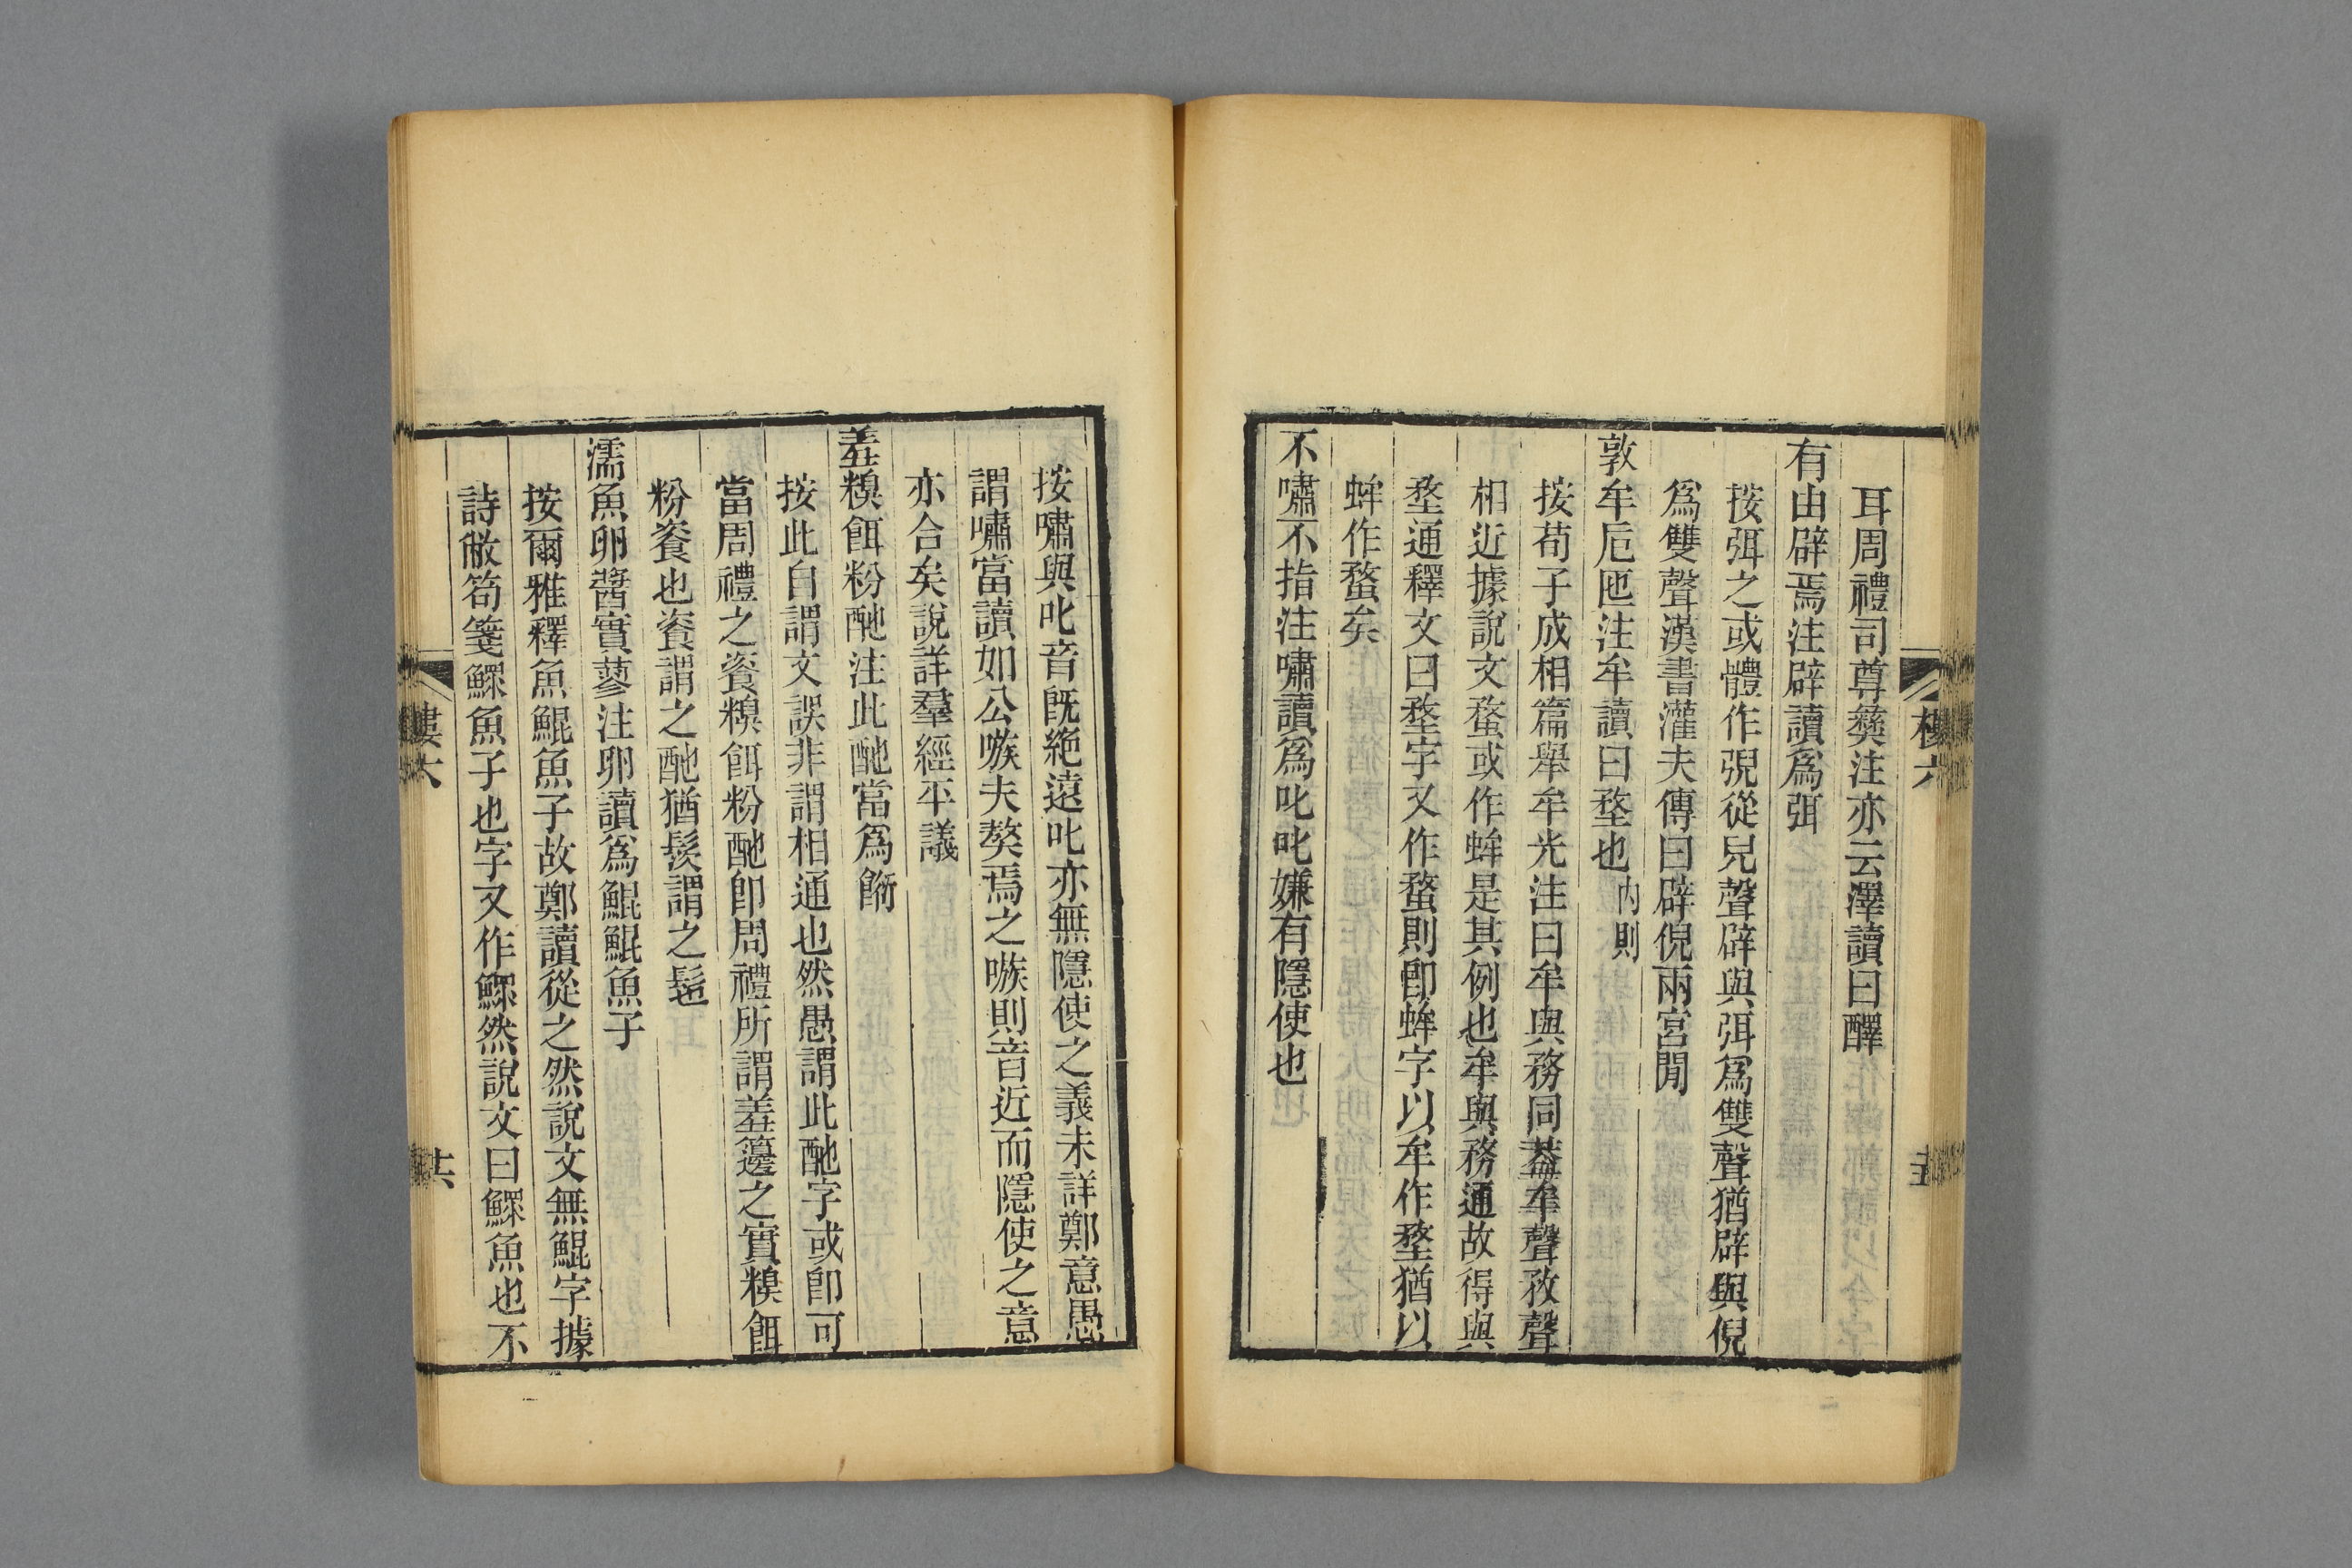 耳周禮司尊彝注亦云澤讀曰醳
有由辟焉注辟讀爲弭
按弭之或體作𢏺從兒聲辟與弭爲雙聲猶辟與倪
爲雙聲漢書灌夫傳曰辟倪兩宮閒
敦牟卮匜注牟讀曰堥也 內則
按荀子成相篇舉牟光注曰牟與務同葢牟聲敄聲
相近據說文蝥或作蛑是其例也牟與務通故得與
堥通釋文曰堥字又作蝥則卽蛑字以牟作堥猶以
蛑作蝥矣
不嘯不指注嘯讀爲叱叱嫌有隱使也
按嘯與叱音旣絶遠叱亦無隱使之義未詳鄭意愚
謂嘯當讀如公嗾夫獒焉之嗾則音近而隱使之意
亦合矣說詳羣經平議
羞糗餌粉酏注此酏當爲餰
按此自謂文誤非謂相通也然愚謂此酏字或卽可
當周禮之餈糗餌粉酏卽周禮所謂羞籩之實糗餌
粉餈也餈謂之酏猶髲謂之髢
濡魚卵醬實蓼注卵讀爲鯤鯤魚子
按爾雅釋魚鯤魚子故鄭讀從之然說文無鯤字據
詩敝笱箋鰥魚子也字又作鰥然說文曰鰥魚也不
樓六